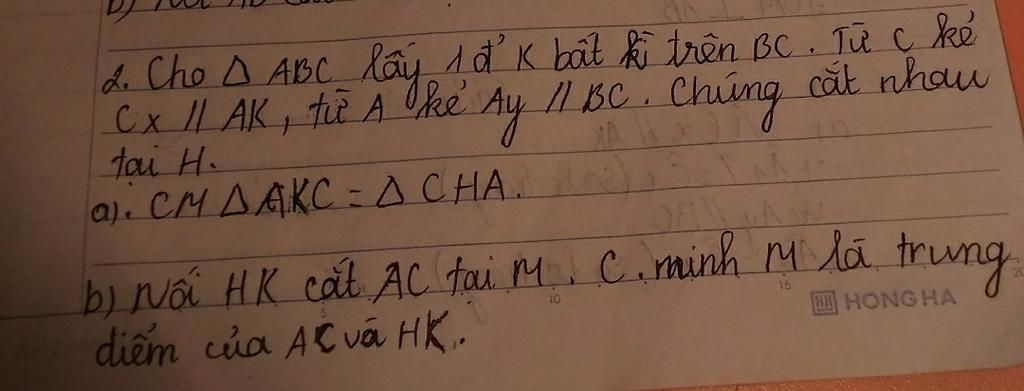 2. Cho Δ ABC lấy 1 đ' K bất kì trên BC. Từ C kẻ
Cx // AK, từ A kẻ Ay // BC. Chúng cắt nhau
tại H.
a). CM Δ AKC = Δ CHA.
b) Nối HK cắt AC tại M. C.minh M là trung
điểm của AC và HK.
HONG HA